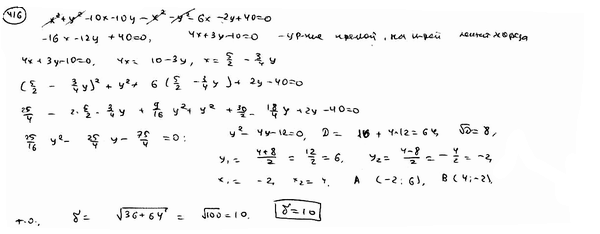 416
x² + y² - 10x - 10y - x² - y² - 6x - 2y + 40 = 0
-16x - 12y + 40 = 0, 4x + 3y - 10 = 0 - ур-ние прямой, на
4x + 3y - 10 = 0, 4x = 10 - 3y, x = 5/2 - 3/4 y
(5/2 - 3/4 y)² + y² + 6(5/2 - 3/4 y) + 2y - 40 = 0
25/4 - 2 · 5/2 · 3/4 y + 9/16 y² + y² + 30/2 - 18/4 y + 2y - 40 = 0
25/16 y² - 25/4 y - 75/4 = 0: y² - 4y - 12 = 0, D = 16 + 4·12 = 64, √D = 8,
y₁ = (4+8)/2 = 12/2 = 6, y₂ = (4-8)/2 = -4/2 = -2,
x₁ = -2, x₂ = 4. A (-2; 6), B (4; -2).
т.о., γ = √(36+64) = √100 = 10. γ = 10